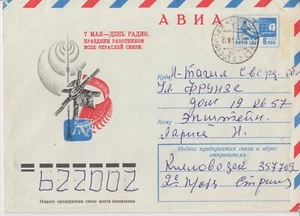 7 МАЯ—ДЕНЬ РАДИО.
ПРАЗДНИК РАБОТНИКОВ
ВСЕХ ОТРАСЛЕЙ СВЯЗИ.
АВИА
Куда Н-Тагил Сверд. обл.
ул. Фрунзе
дом 19 кв 57
Кому Эпштейн
Лариса Н.
Индекс предприятия связи и адрес
отправителя
357703
622002
Индекс предприятия связи места назначения